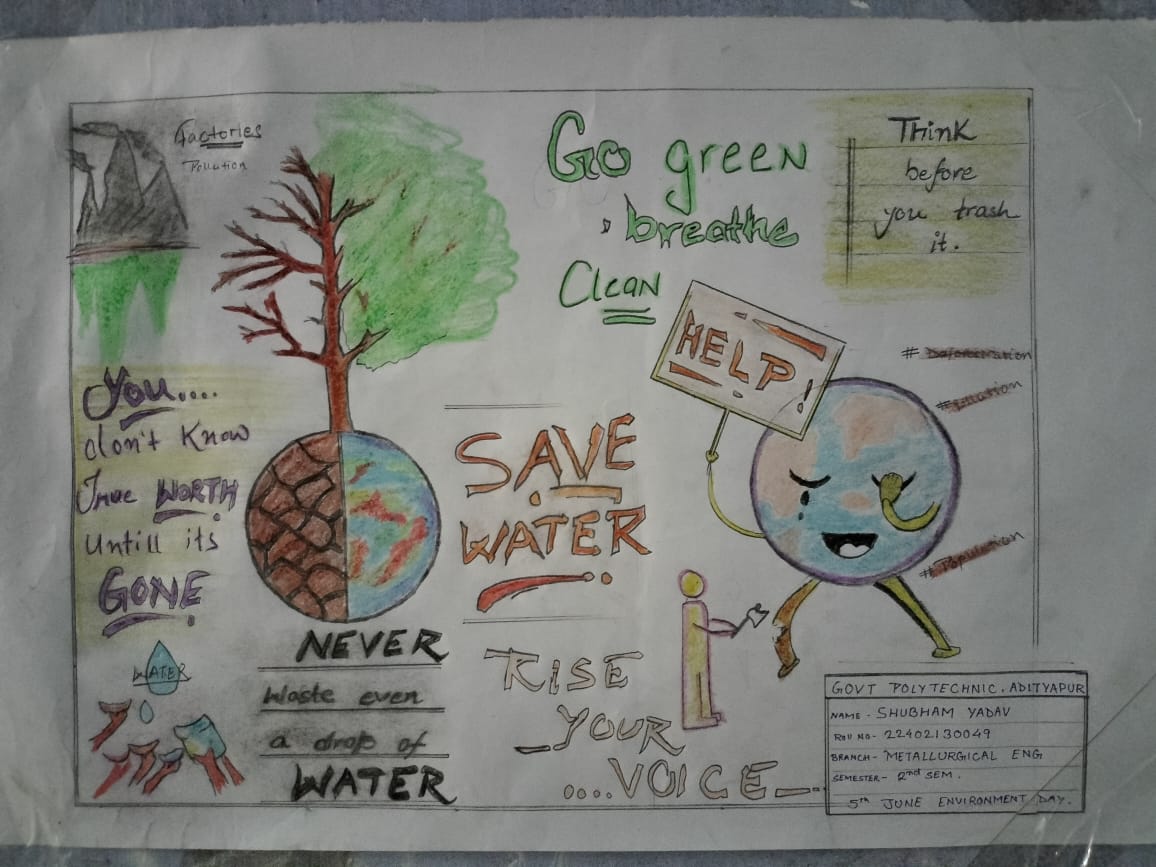 Factories
Pollution
Go green
breathe
Clean
Think
before
you trash
it.
HELP!
# Deforestration
# Pollution
# Population
You....
don't Know
True WORTH
Untill its
GONE
SAVE
WATER
WATER
NEVER
Waste even
a drop of
WATER
RISE
YOUR
....VOICE
GOVT POLYTECHNIC. ADITYAPUR
NAME- SHUBHAM YADAV
Roll NO- 22402130049
BRANCH- METALLURGICAL ENG
SEMESTER- 2nd SEM.
5th JUNE ENVIRONMENT DAY.